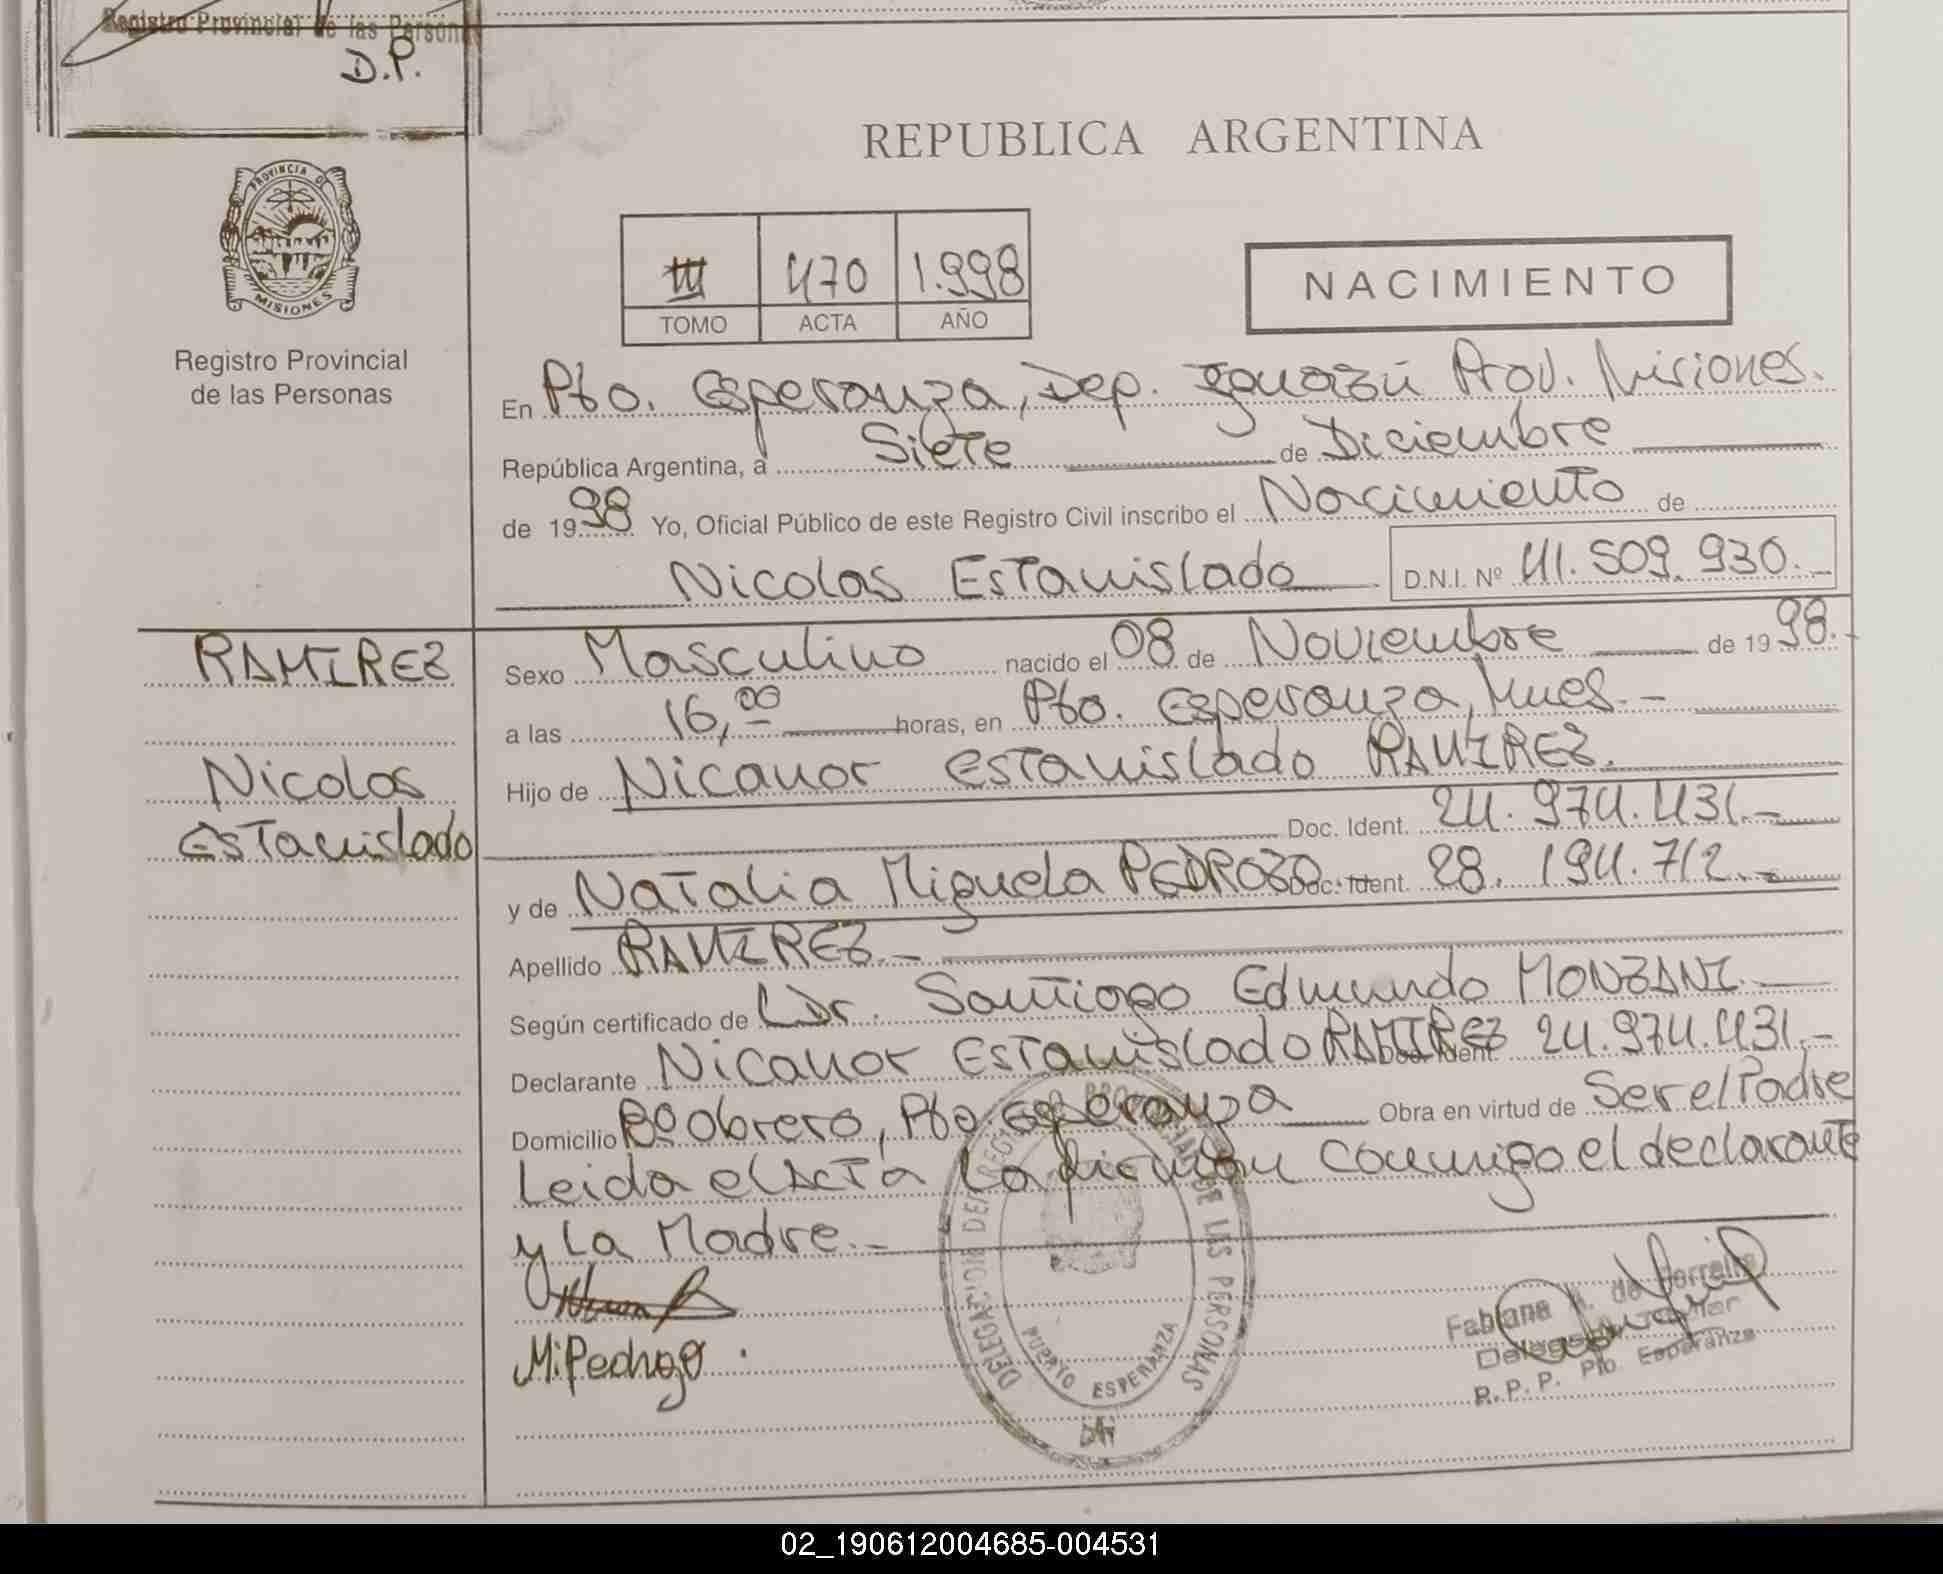 Registro Provincial de las Personas
D.P.
REPUBLICA ARGENTINA
PROVINCIA DE
MISIONES
Registro Provincial
de las Personas
III 470 1.998
TOMO ACTA AÑO
NACIMIENTO
En Pto. Esperanza, Dep. Iguazú Prov. Misiones.
República Argentina, a Siete de Diciembre
de 1998 Yo, Oficial Público de este Registro Civil inscribo el Nacimiento de
Nicolas Estanislado D.N.I. Nº 41.509.930.-
RAMIREZ
Nicolas
Estanislado
Sexo Masculino nacido el 08 de Noviembre de 1998.-
a las 16,00 horas, en Pto. Esperanza, Mnes.-
Hijo de Nicanor Estanislado RAMIREZ.
Doc. Ident. 24.974.431.-
y de Natalia Miguela PEDROZO Doc. Ident. 28.194.712.-
Apellido RAMIREZ.-
Según certificado de Dr. Santiago Edmundo MONZANI.-
Declarante Nicanor Estanislado RAMIREZ Doc. Ident. 24.974.431.-
Domicilio Bº Obrero, Pto Esperanza Obra en virtud de Ser el Padre
Leida el Acta La firman conmigo el declarante
y La Madre.-
M.Pedrozo.
DELEGACION DEL REGISTRO PROVINCIAL DE LAS PERSONAS
PUERTO ESPERANZA
Fabiana A. de Ferreira
Delegada Titular
R.P.P. Pto. Esperanza
02_190612004685-004531